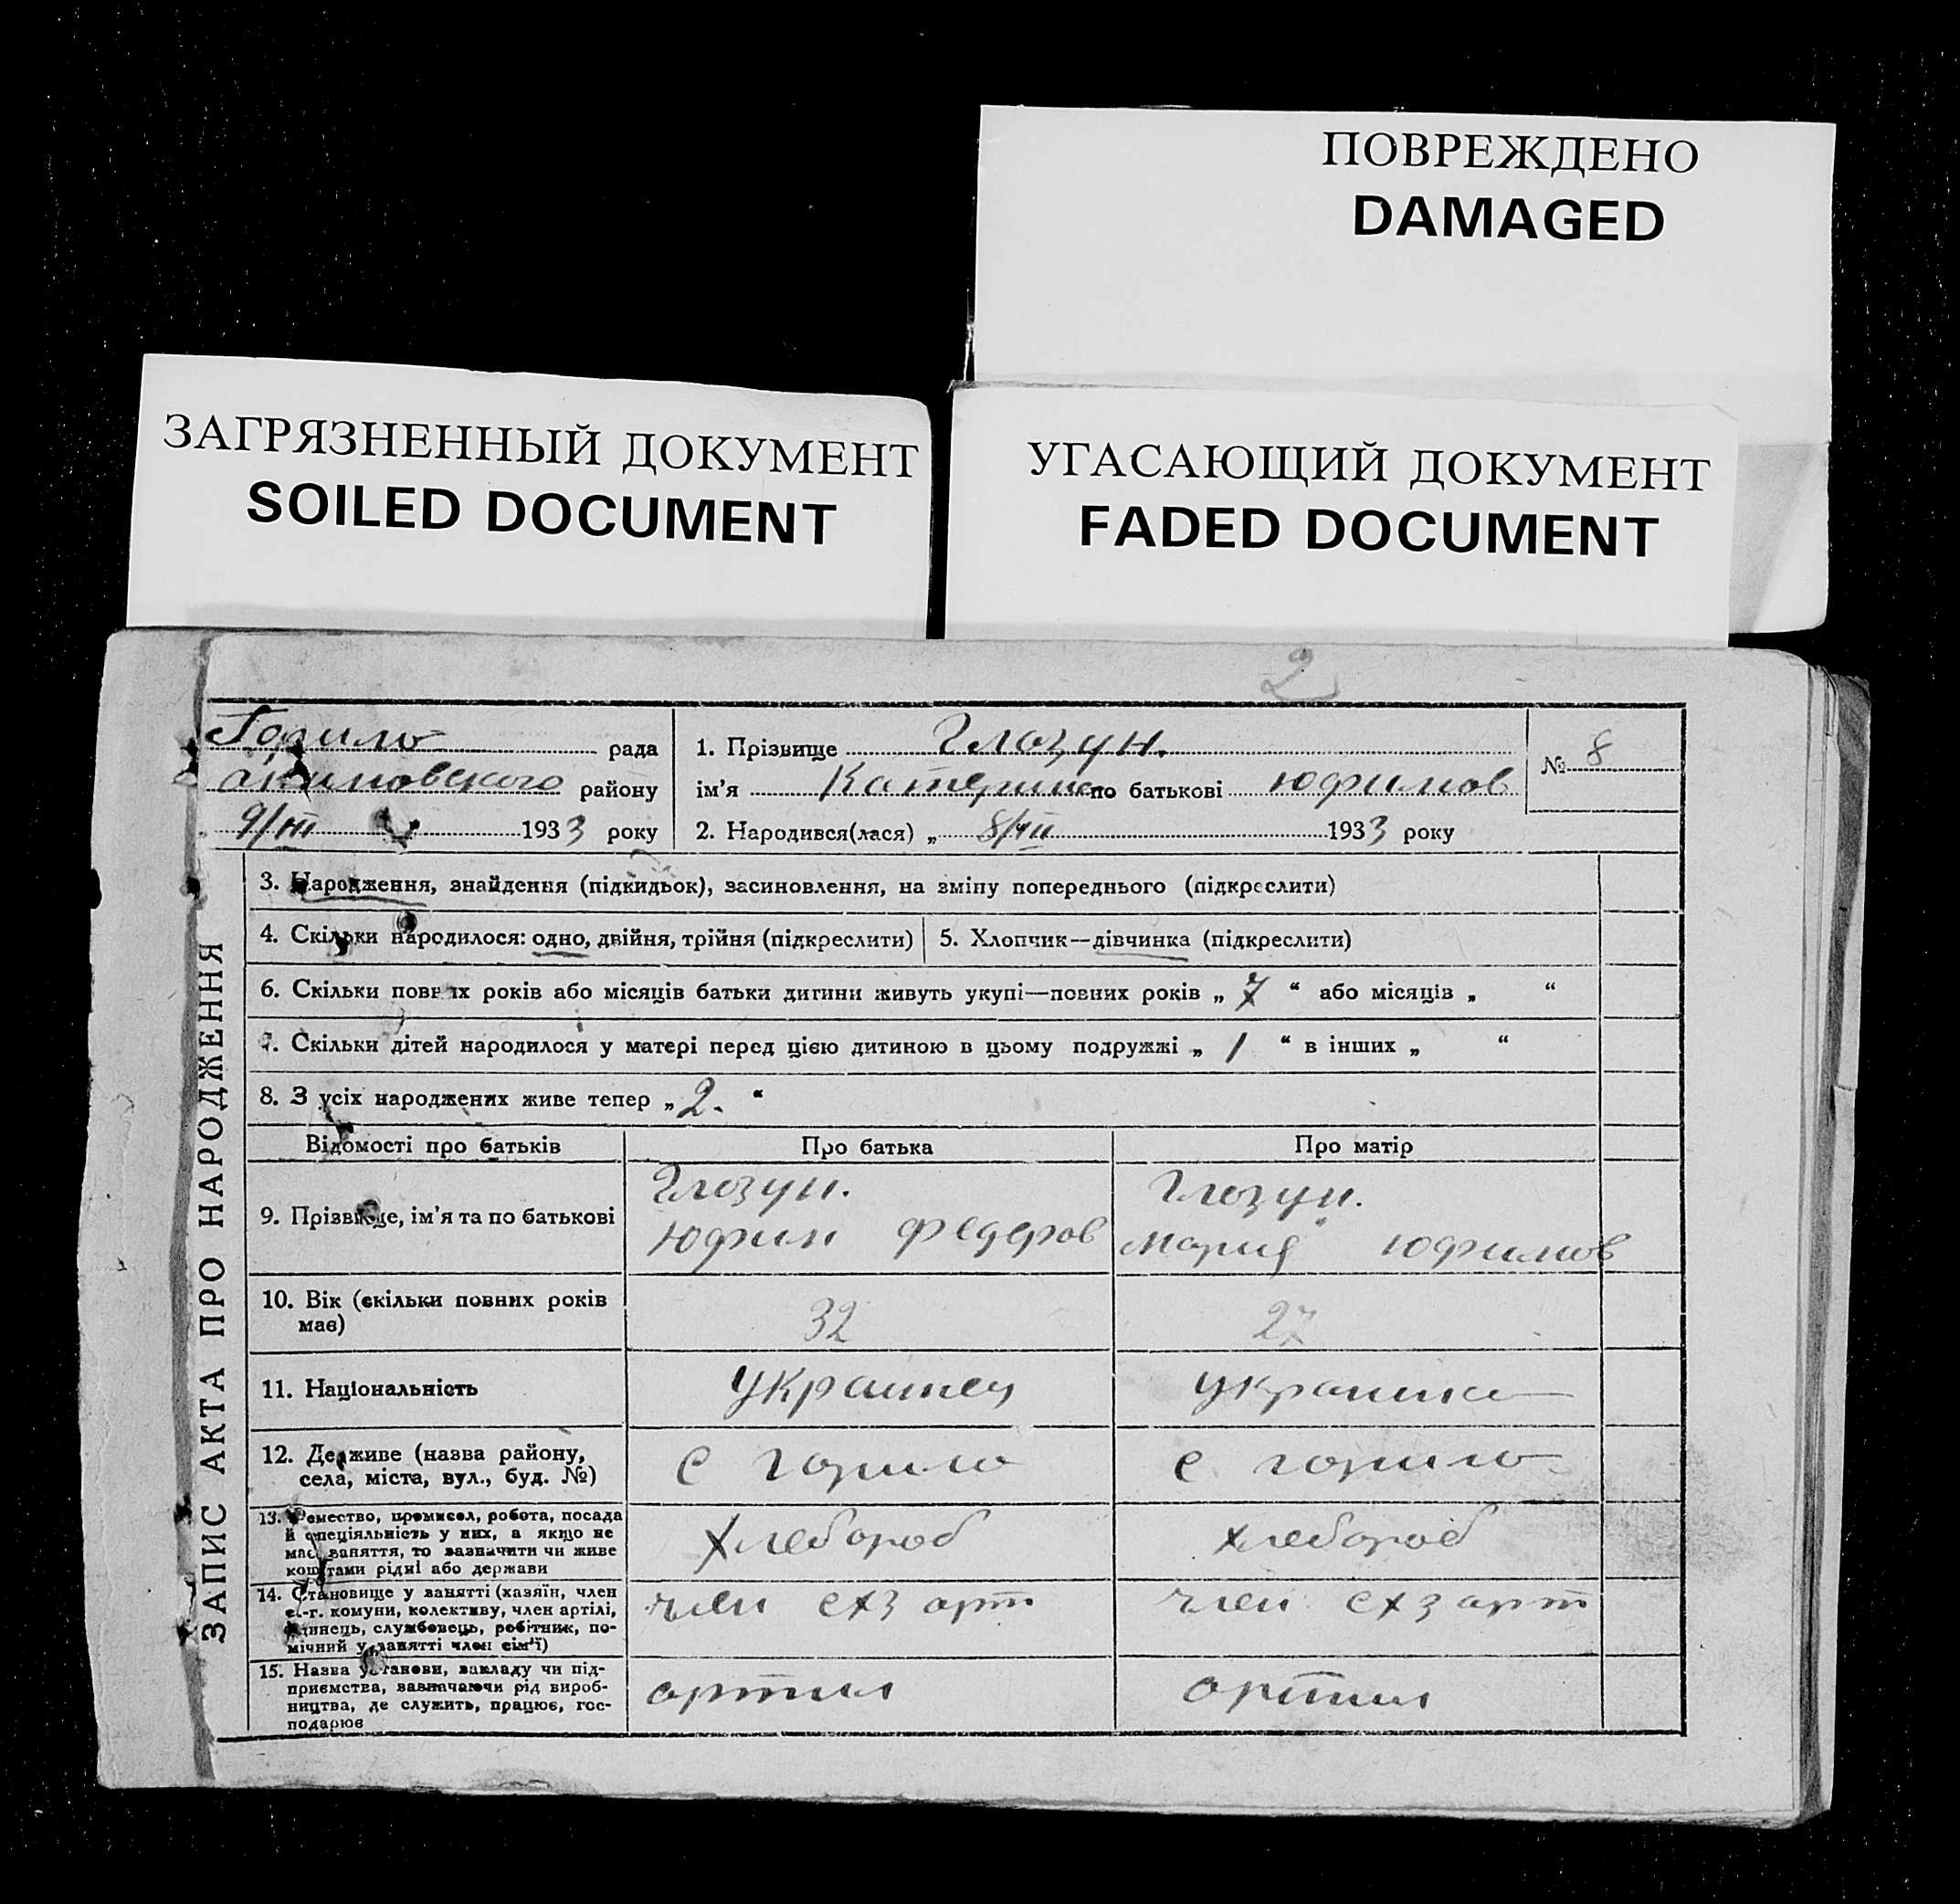 ПОВРЕЖДЕНО
DAMAGED
ЗАГРЯЗНЕННЫЙ ДОКУМЕНТ
SOILED DOCUMENT
УГАСАЮЩИЙ ДОКУМЕНТ
FADED DOCUMENT
2
ЗАПИС АКТА ПРО НАРОДЖЕННЯ
рада
району
9/III 1933 року
1. Прізвище Глозун.
ім'я Катерина по батькові Юфимов
№ 8
2. Народився(лася) „ 1933 року
3. Народження, знайдення (підкидьок), засиновлення, на зміну попереднього (підкреслити)
4. Скільки народилося: одно, двійня, трійня (підкреслити)
5. Хлопчик—дівчинка (підкреслити)
6. Скільки повних років або місяців батьки дитини живуть укупі—повних років „ 7 “ або місяців „ “
7. Скільки дітей народилося у матері перед цією дитиною в цьому подружжі „ 1 “ в інших „ “
8. З усіх народжених живе тепер „ 2. “
Відомості про батьків
Про батька
Про матір
9. Прізвище, ім'я та по батькові
Глозун.
Юфим Федеров
Глозун.
Мария Юфимов
10. Вік (скільки повних років
має)
32
27
11. Національність
Украинец
украинка
12. Де живе (назва району,
села, міста, вул., буд. №)
с
с.
13. Ремество, промисел, робота, посада
й спеціяльність у них, а якщо не
має заняття, то зазначити чи живе
коштами рідні або держави
Хлебороб
хлебороб
14. Становище у занятті (хазяїн, член
с.-г. комуни, колективу, член артілі,
одинець, службовець, робітник, по-
мічний у занятті член сім'ї)
член схз арт
член схз арт
15. Назва установи, закладу чи під-
приємства, зазначаючи рід вироб-
ництва, де служить, працює, гос-
подарює
артил
артил